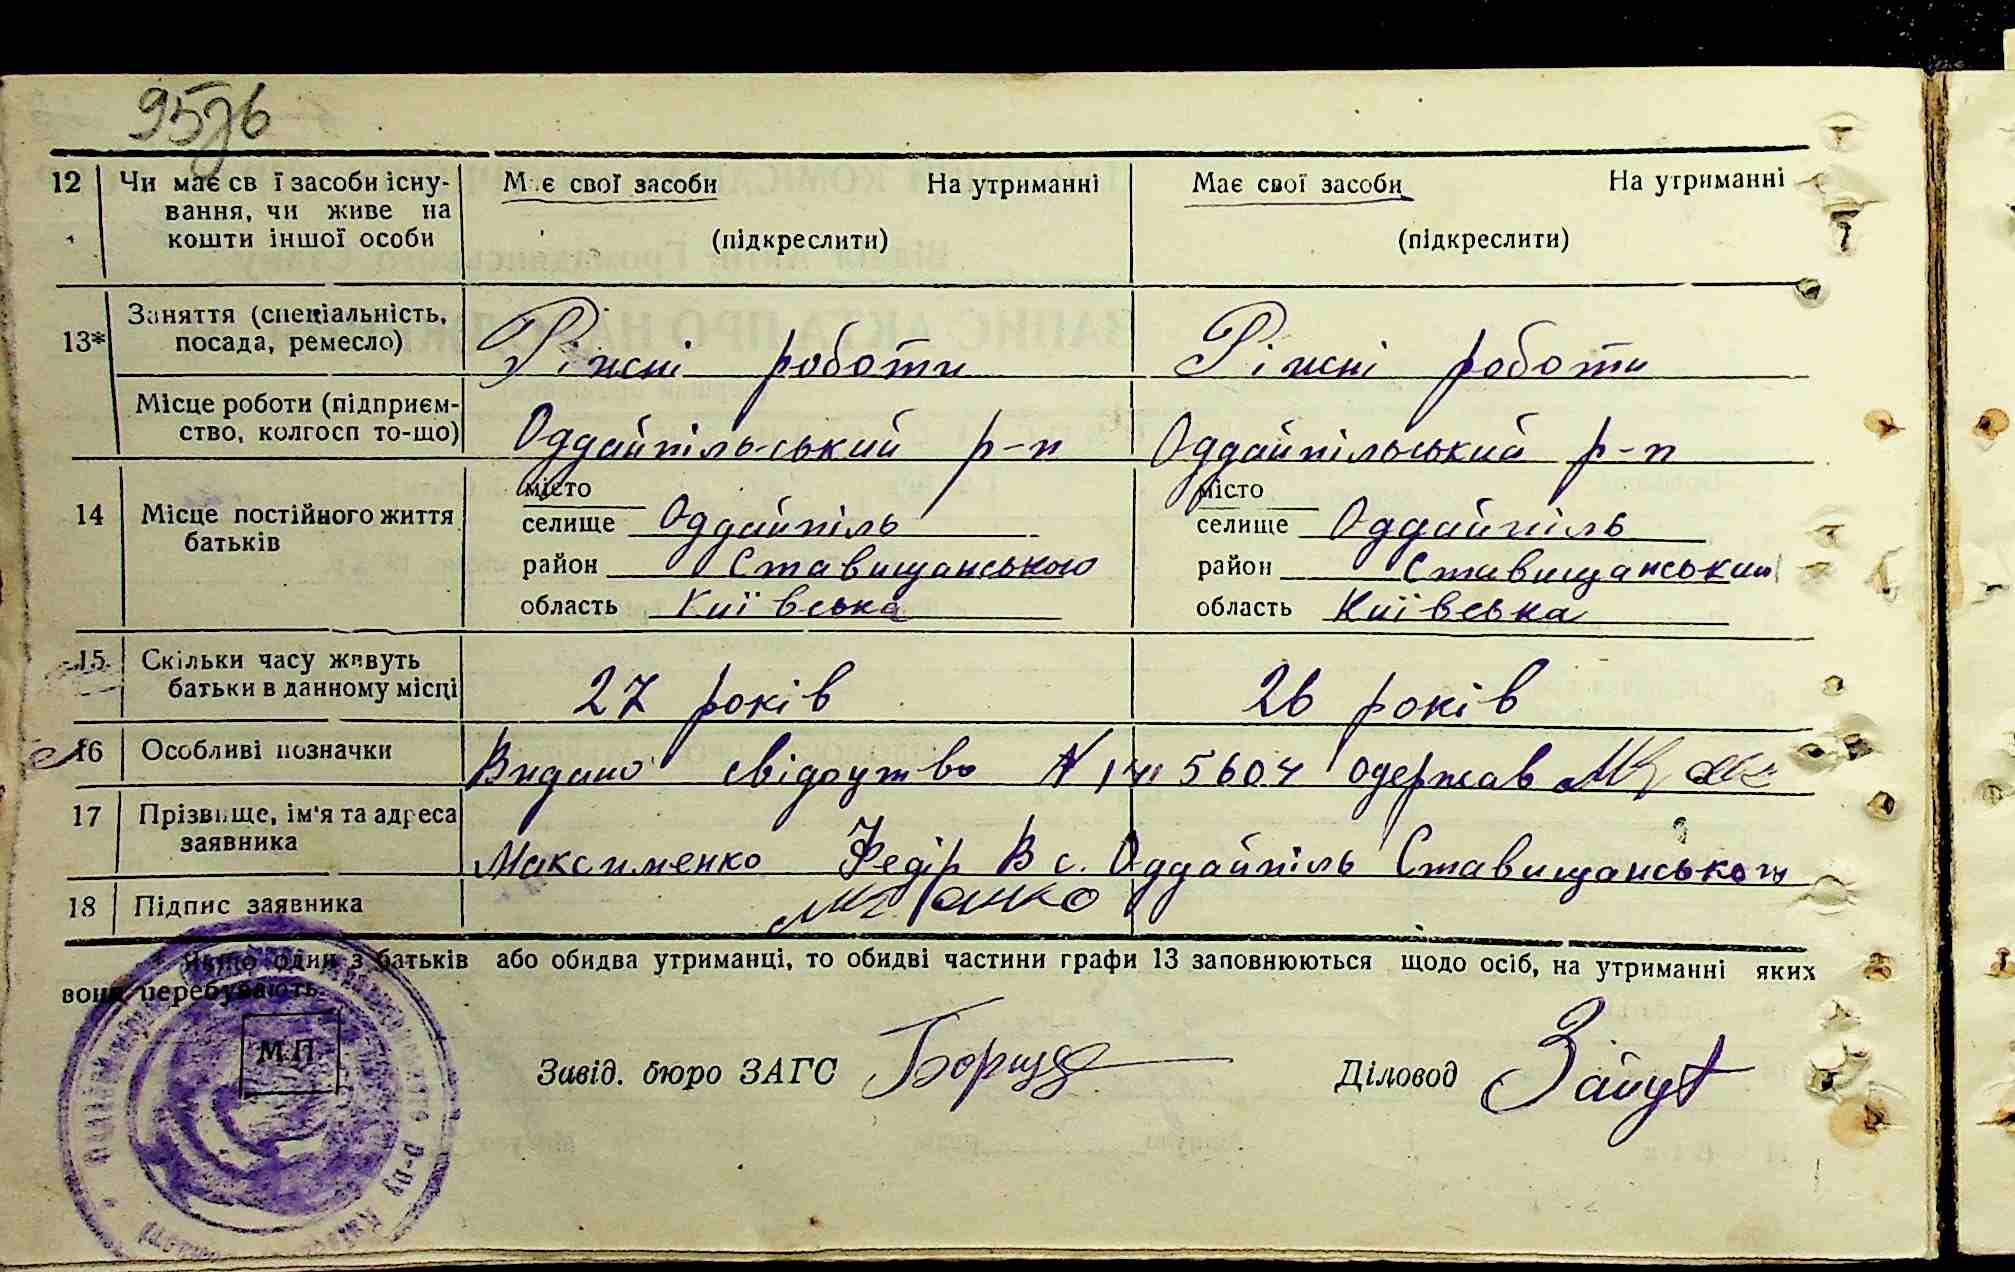 95зб
12 Чи має св ї засоби існу- М .є свої засоби На утриманні Має свої засоби На утриманні
вання, чи живе на
кошти іншої особи (підкреслити) (підкреслити)
13* Заняття (спеціальність, посада, ремесло) Ріжні роботи Ріжні роботи
Місце роботи (підприєм-
ство, колгосп то-що) Оддайпільський р-п Оддайпільський р-п
місто місто
14 Місце постійного життя селище Оддайпіль селище Оддайпіль
батьків район Ставищанського район Ставищанський
область Київська область Київська
15 Скільки часу живуть
батьки в данному місці 27 років 26 років
16 Особливі позначки Видано свідоцтво № 5604 одержав
17 Прізвище, ім'я та адреса
заявника Максименко Федір В с. Оддайпіль Ставищанського
18 Підпис заявника
* Якщо один з батьків або обидва утриманці, то обидві частини графи 13 заповнюються щодо осіб, на утриманні яких
вони перебувають.
М.П.
Завід. бюро ЗАГС Діловод